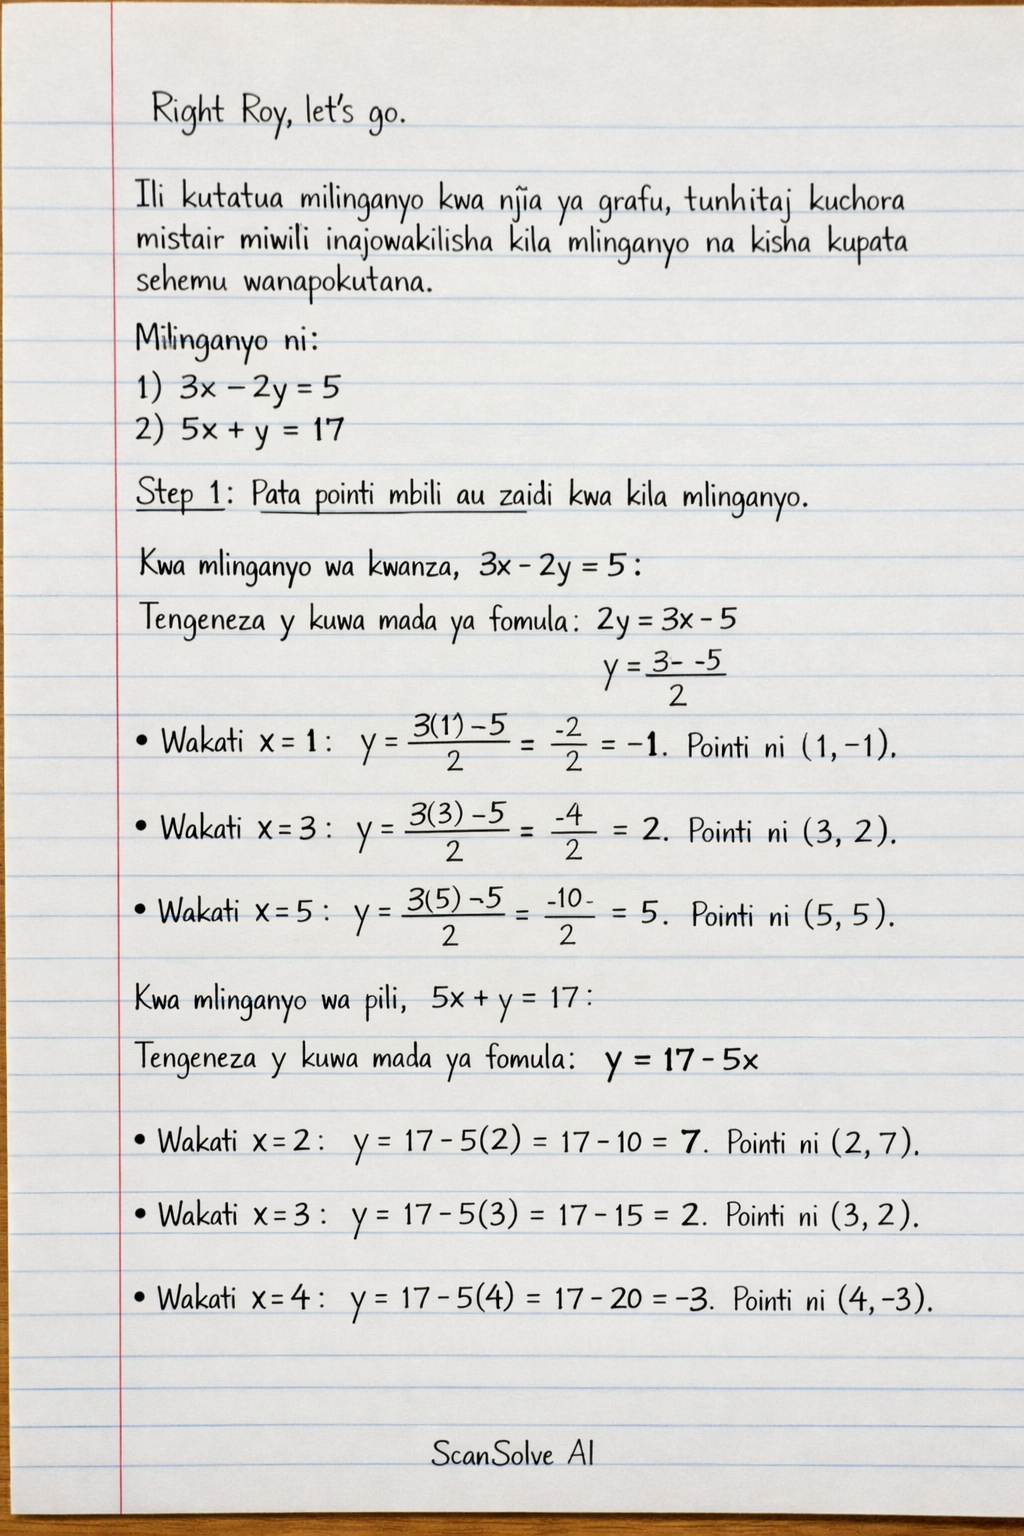 Right Roy, let's go.
Ili kutatua milinganyo kwa njĩa ya grafu, tunhitaj kuchora
mistair miwili inajowakilisha kila mlinganyo na kisha kupata
sehemu wanapokutana.
Milinganyo ni:
1) 3x – 2y = 5
2) 5x + y = 17
Step 1: Pata pointi mbili au zaidi kwa kila mlinganyo.
Kwa mlinganyo wa kwanza, 3x - 2y = 5:
Tengeneza y kuwa mada ya fomula: 2y = 3x - 5
y = (3- -5)/2
• Wakati x = 1: y = (3(1) - 5)/2 = -2/2 = -1. Pointi ni (1, -1).
• Wakati x = 3: y = (3(3) - 5)/2 = -4/2 = 2. Pointi ni (3, 2).
• Wakati x = 5: y = (3(5) -5)/2 = -10-/2 = 5. Pointi ni (5, 5).
Kwa mlinganyo wa pili, 5x + y = 17:
Tengeneza y kuwa mada ya fomula: y = 17 - 5x
• Wakati x = 2: y = 17 - 5(2) = 17 - 10 = 7. Pointi ni (2, 7).
• Wakati x = 3: y = 17 - 5(3) = 17 - 15 = 2. Pointi ni (3, 2).
• Wakati x = 4: y = 17 - 5(4) = 17 - 20 = -3. Pointi ni (4, -3).
ScanSolve AI